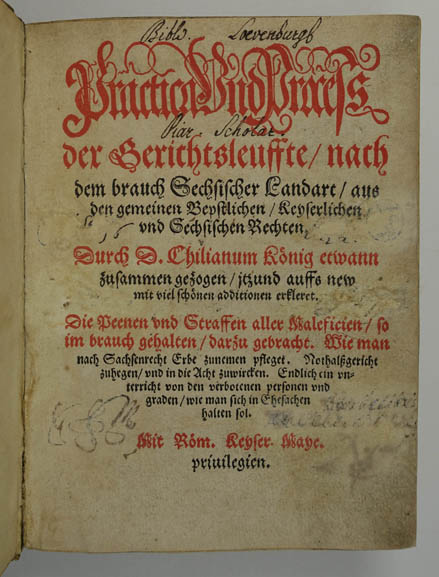 Biblio. Loevenburgh
Practica Und Process
Piar. Scholar.
der Gerichtsleuffte / nach
dem brauch Sechsischer Landart / aus
den gemeinen Bepstlichen / Keyserlichen
vnd Sechsischen Rechten,
Durch D. Chilianum König etwann
zusammen gezogen / jtzund auffs new
mit viel schönen additionen erkleret.
Die Peenen vnd Straffen aller Maleficien / so
im brauch gehalten / darzu gebracht. Wie man
nach Sachsenrecht Erbe zunemen pfleget. Nothalßgericht
zuhegen / vnd in die Acht zuwircken. Endlich ein vn-
terricht von den verbotenen personen vnd
graden / wie man sich in Ehesachen
halten sol.
Mit Röm. Keyser. Maye.
priuilegien.